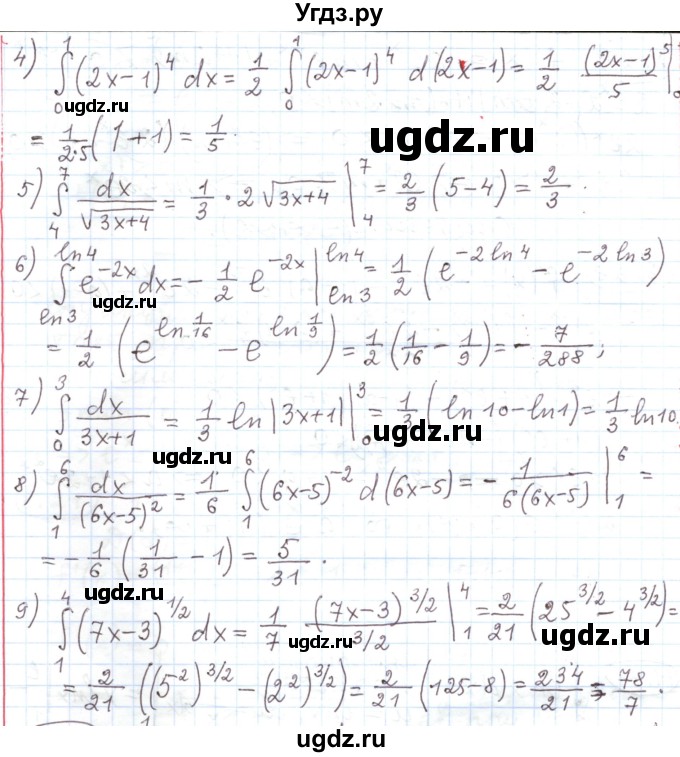 Угдз.ру
4) ∫₀¹ (2x−1)⁴ dx = 1/2 ∫₀¹ (2x−1)⁴ d(2x−1) = 1/2 (2x−1)⁵/5 |₀
ugdz.ru
ugdz.ru
= 1/(2·5) (1+1) = 1/5.
ugdz.ru
5) ∫₄⁷ dx/√(3x+4) = 1/3 · 2√(3x+4) |₄⁷ = 2/3 (5−4) = 2/3.
ugdz.ru
6) ∫_{ln3}^{ln4} e^{−2x} dx = −1/2 e^{−2x} |_{ln3}^{ln4} = 1/2 (e^{−2ln4} − e^{−2ln3})
ugdz.ru
= 1/2 (e^{ln 1/16} − e^{ln 1/9}) = 1/2 (1/16 − 1/9) = −7/288;
ugdz.ru
7) ∫₀³ dx/(3x+1) = 1/3 ln|3x+1| |₀³ = 1/3 (ln10−ln1) = 1/3 ln10
ugdz.ru
ugdz.ru
8) ∫₁⁶ dx/(6x−5)² = 1/6 ∫₁⁶ (6x−5)⁻² d(6x−5) = −1/(6(6x−5)) |₁⁶ =
ugdz.ru
= −1/6 (1/31 − 1) = 5/31.
ugdz.ru
9) ∫₁⁴ (7x−3)^{1/2} dx = 1/7 (7x−3)^{3/2}/(3/2) |₁⁴ = 2/21 (25^{3/2} − 4^{3/2}) =
ugdz.ru
ugdz.ru
= 2/21 ((5²)^{3/2} − (2²)^{3/2}) = 2/21 (125−8) = 234/21 = 78/7.
ugdz.ru